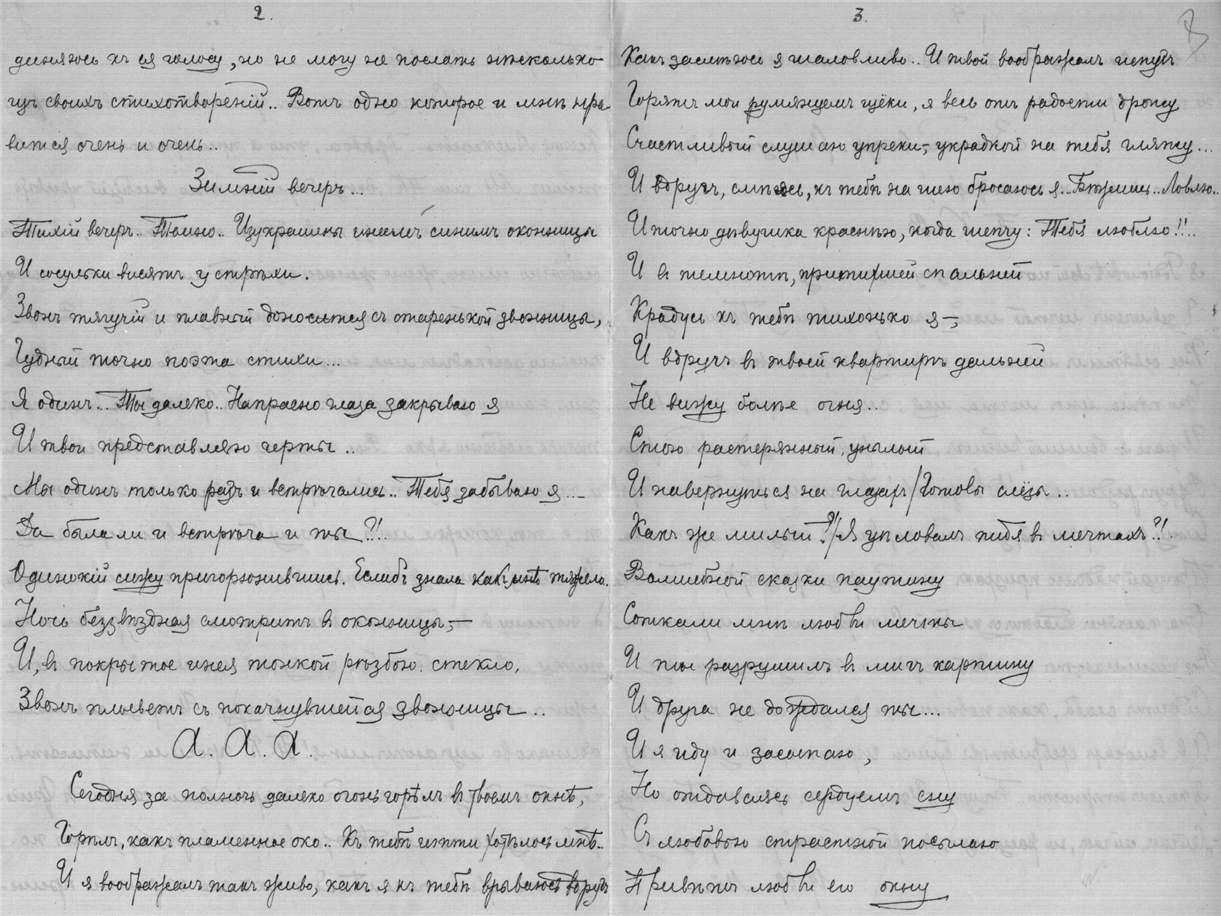 2.
диняюсь къ ея голосу, но не могу не послать нѣсколько
изъ своихъ стихотвореній.. Вотъ одно которое и мнѣ нра-
вится очень и очень..
Зимній вечеръ...
Тихій вечеръ.. Темно.. Изукрашены инеемъ синимъ оконницы
И сосульки висятъ у стрѣхи.
Звонъ тягучій и плавный доносится съ старенькой звонницы,
Чудный точно поэта стихи...
Я одинъ.. Ты далеко.. Напрасно глаза закрываю я
И твои представляю черты..
Мы одинъ только разъ и встрѣчались.. Тебя забываю я...
Да была ли и встрѣча и ты?!.
Одинокій сижу пригорюнившись. Еслибъ знала какъ мнѣ тяжело.
Ночь беззвѣздная смотритъ въ оконницы,—
И, въ покрытое инея тонкой рѣзьбою стекло,
Звонъ плыветъ съ покачнувшейся звонницы..
А. А. А.
Сегодня за полночь далеко огонь горѣлъ въ твоемъ окнѣ,
Горѣлъ, какъ пламенное око.. Къ тебѣ идти хотѣлось мнѣ.
И я воображалъ такъ живо, какъ я къ тебѣ врываюсь вдругъ
3.
Какъ засмѣюсь я шаловливо.. И твой воображалъ испугъ
Горятъ мои румянцемъ щёки, я весь отъ радости дрожу
Счастливый слушаю упреки,— украдкой на тебя гляжу...
И вдругъ, смѣясь, къ тебѣ на шею бросаюсь я.. Бѣжишь.. Ловлю..
И точно дѣвушка краснѣю, когда шепчу: Тебя люблю!!..
И въ темнотѣ, притихшей спальней
Крадусь къ тебѣ тихонько я—,
И вдругъ въ твоей квартирѣ дальней
Не вижу болѣе огня..
Стою растерянный, унылый
И навернуться на глазахъ/Готовы слёзы..
Какъ же милый?!/Я цѣловалъ тебя въ мечтахъ?!.
Волшебной сказки паутину
Соткали мнѣ любви мечты
И ты разрушилъ въ мигъ картину
И друга не дождался ты...
И я иду и засыпаю,
Но отдаваясь сердцемъ сну
Съ любовью страстной посылаю
Привѣтъ любви его окну